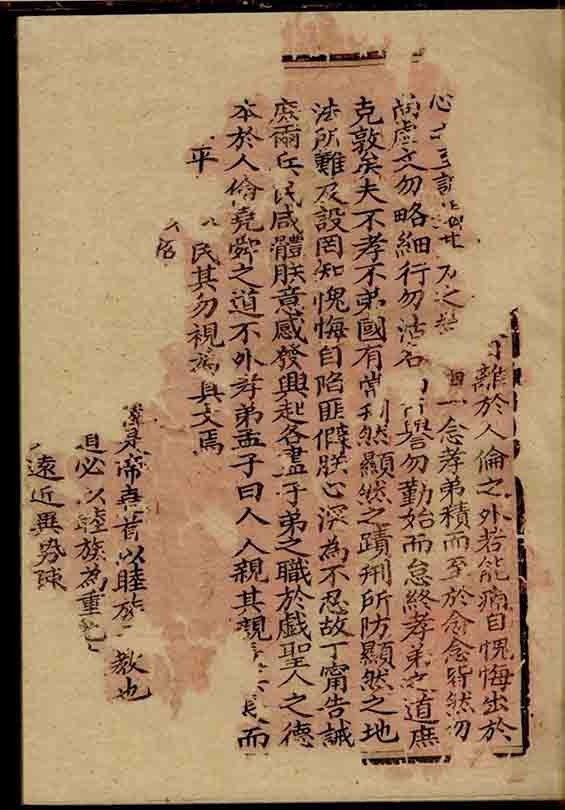 離於人倫之外若能痛自愧悔出於
心之 之 一念孝弟積而至於念念皆然勿
尚虛文勿略細行勿沽名 譽勿勤始而怠終孝弟之道庶
克敦矣夫不孝不弟國有常刑然顯然之蹟刑所防顯然之地
法所難及設罔知愧悔自陷匪僻朕心深為不忍故丁甯告誡
庶爾兵民咸體朕意感發興起各盡子弟之職於戲聖人之德
本於人倫堯舜之道不外孝弟孟子曰人人親其親 長而
平 民其勿視為具文焉
帝 以睦族 教也
必以睦族為重
遠近異勢疎